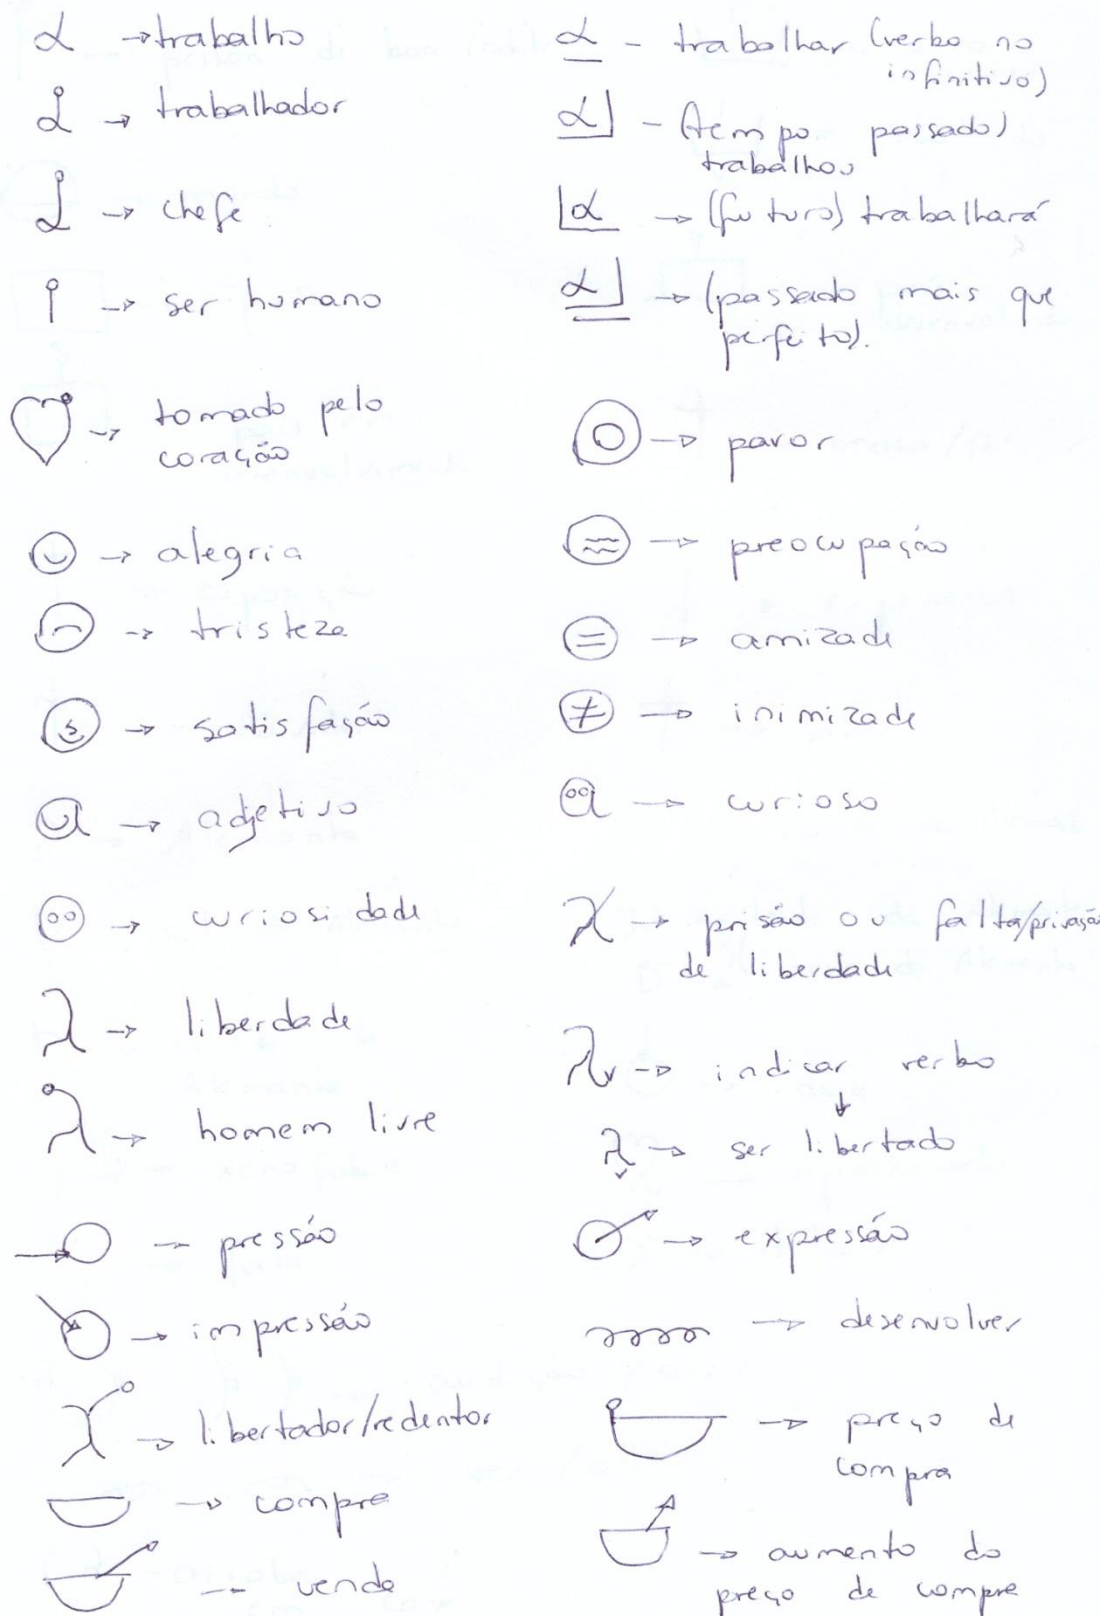 α → trabalho
→ trabalhador
→ chefe
→ ser humano
→ tomado pelo
coração
→ alegria
→ tristeza
s → satisfação
a → adjetivo
→ curiosidade
λ → liberdade
→ homem livre
→ pressão
→ impressão
→ libertador/redentor
→ compra
→ venda
α - trabalhar (verbo no
infinitivo)
α - (tempo passado)
trabalhou
α → (futuro) trabalhará
α → (passado mais que
perfeito).
→ pavor
≈ → preocupação
= → amizade
≠ → inimizade
a → curioso
→ prisão ou falta/privação
de liberdade
λv → indicar verbo
↓
λv → ser libertado
→ expressão
→ desenvolver
→ preço de
compra
→ aumento do
preço de compra